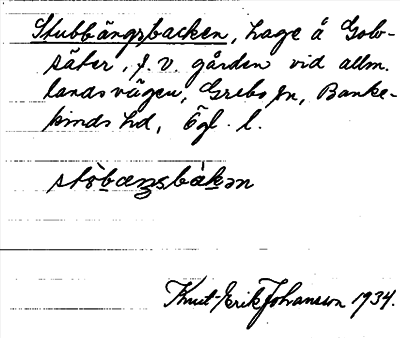 Stubbängsbacken, hage å Golv-
säter, f. v. gården vid allm.
landsvägen, Grebo sn, Banke-
kinds hd, Ögl. l.
stòbæŋsbàkən
Knut-Erik Johansson 1934.